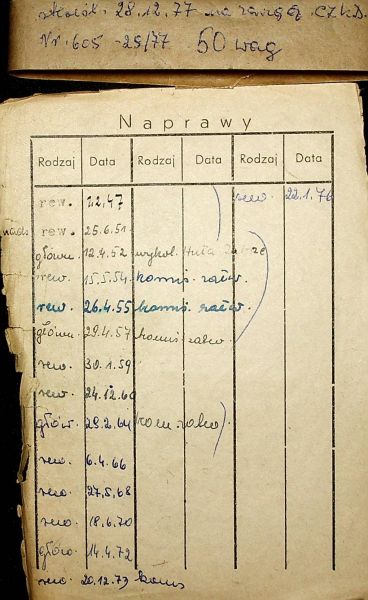 28.12.77 na
Nr. 605-25/77 50 wag
Naprawy
Rodzaj Data Rodzaj Data Rodzaj Data
rew. 22.47 rew. 22.1.76
rew. 25.6.51
główn. 12.4.52 wykol. Huta
rew. 15.5.54 komis.
rew. 26.4.55 komis.
główn. 29.4.57 komis
rew. 30.1.59
rew. 24.12.60
główn. 29.2.64 kom.
rew. 6.4.66
rew. 27.5.68
rew. 18.6.70
główn. 14.4.72
rew. 20.12.73 komis